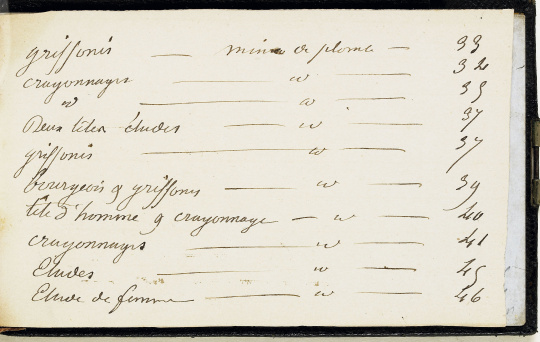 griffonis — mine de plomb — 33
crayonnages — id — 32
id — id — 35
Deux têtes études — id — 37
griffonis — id — 37
bourgeois & griffonis — id — 39
tête d'homme & crayonnage — id — 40
crayonnages — id — 41
Etudes — id — 45
Etude de femme — id — 46